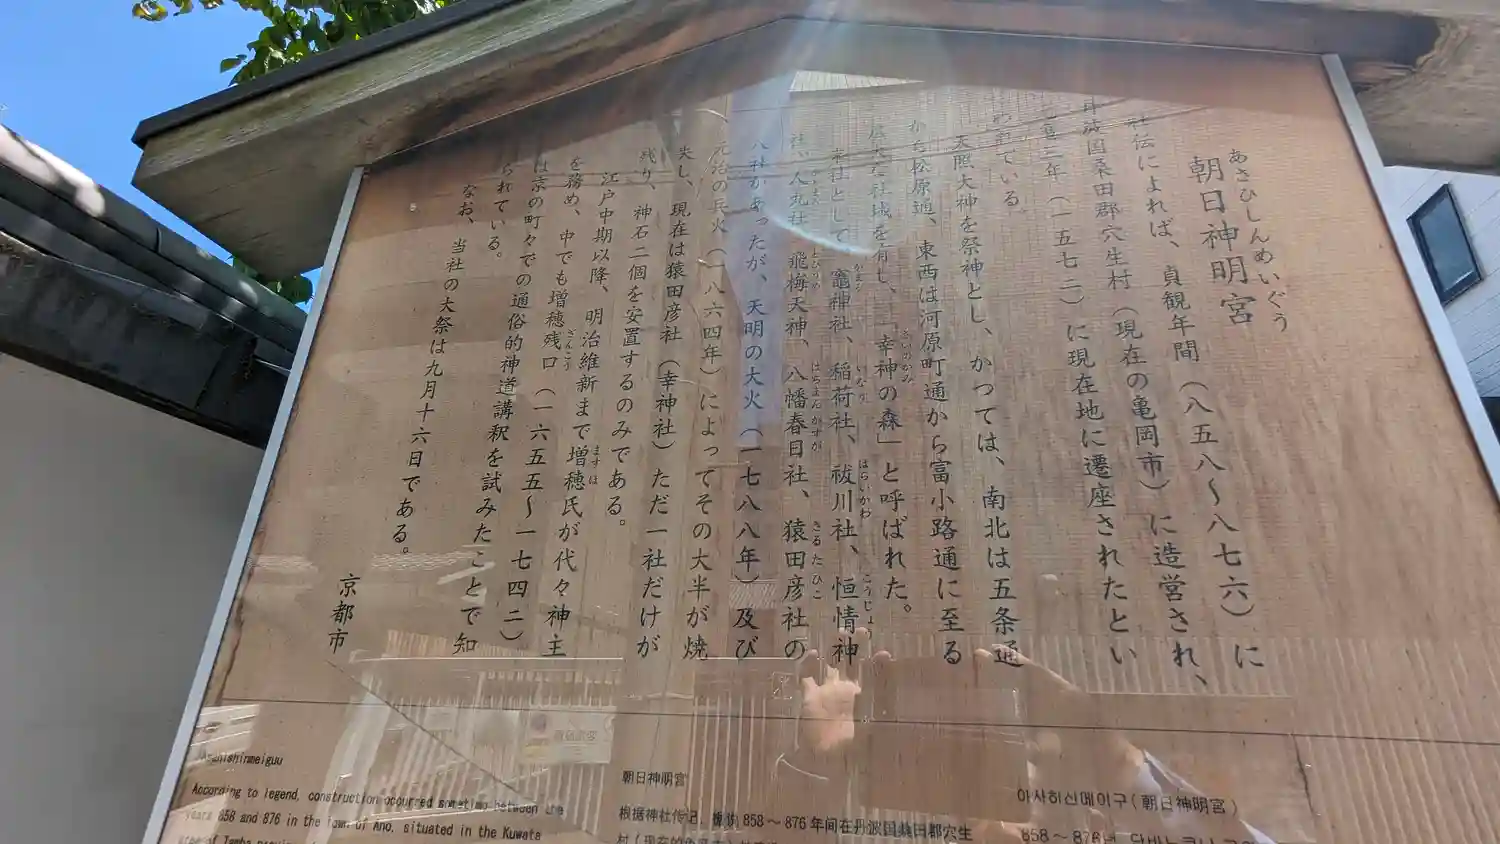 あさひしんめいぐう
朝日神明宮
社伝によれば、貞観年間（八五八〜八七六）に
丹波国桑田郡穴生村（現在の亀岡市）に造営され、
三年（一五七二）に現在地に遷座されたとい
われている。
天照大神を祭神とし、かつては、南北は五条通
から松原通、東西は河原町通から富小路通に至る
な社域を有し、「幸神の森」と呼ばれた。
さいのかみ
末社として竈神社、稲荷社、祓川社、恒情神
かまど
いなり
はらいかわ
こうじょう
社、人丸社、飛梅天神、八幡春日社、猿田彦社の
とびうめ
はちまんかすが
さるたひこ
八社があったが、天明の大火（一七八八年）及び
元治の兵火（一八六四年）によってその大半が焼
失し、現在は猿田彦社（幸神社）ただ一社だけが
残り、神石二個を安置するのみである。
江戸中期以降、明治維新まで増穂氏が代々神主
ますほ
を務め、中でも増穂残口（一六五五〜一七四二）
ざんこう
は京の町々での通俗的神道講釈を試みたことで知
られている。
なお、当社の大祭は九月十六日である。
京都市
Asahishinmeiguu
According to legend, construction occurred sometime between the
years 858 and 876 in the town of Ano, situated in the Kuwata
朝日神明宮
根据神社传记，858～876年间在丹波国桑田郡穴生
村（现在的
아사히신메이구(朝日神明宮)
858～876년